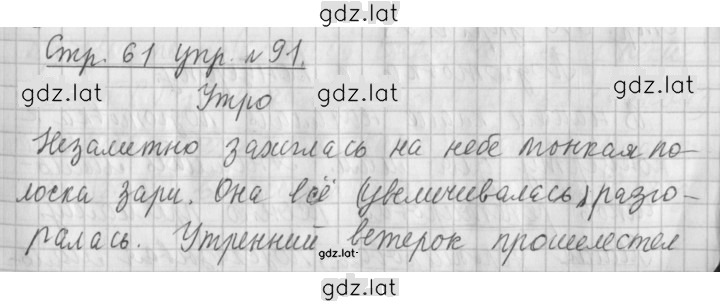 gdz.lat
Стр. 61 упр. № 91.
gdz.lat gdz.lat gdz.lat
Утро
Незаметно зажглась на небе тонкая по-
лоска зари. Она всё (увеличивалась) разго-
ралась. Утренний ветерок прошелестел
gdz.lat gdz.lat gdz.lat
gdz.lat
gdz.lat